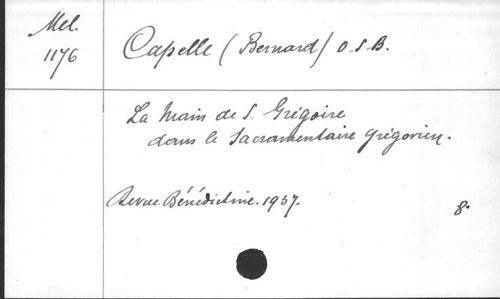 Mel.
1176
Capelle (Bernard) O.S.B.
La Main de S. Grégoire
dans le Sacramentaire grégorien.
Revue Bénédictine. 1937.
8.